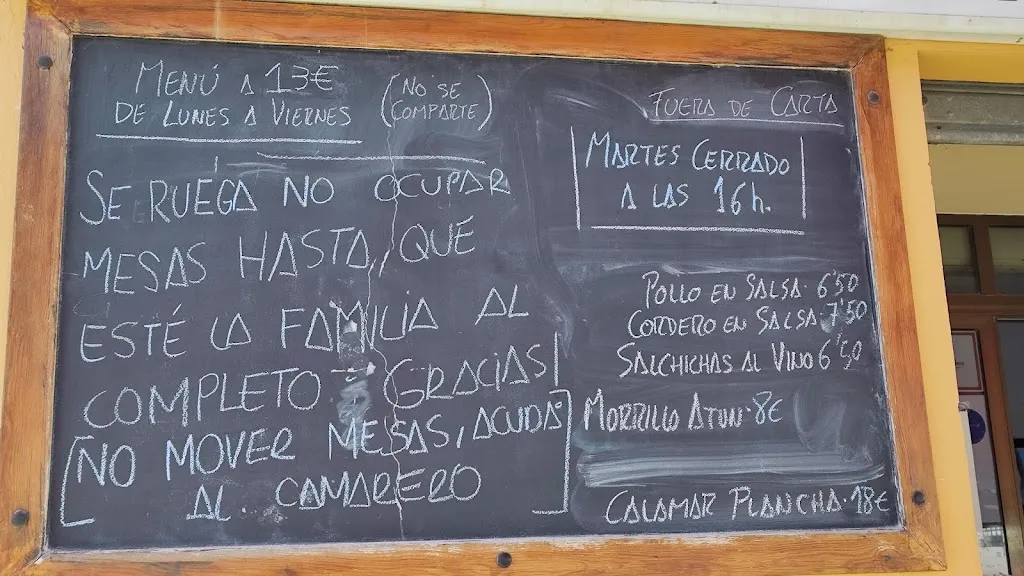 MENÚ A 13€
DE LUNES A VIERNES
(NO SE
COMPARTE)
SE RUEGA NO OCUPAR
MESAS HASTA QUE
ESTÉ LA FAMILIA AL
COMPLETO - GRACIAS
[NO MOVER MESAS, ACUDA
AL CAMARERO]
FUERA DE CARTA
MARTES CERRADO
A LAS 16h.
POLLO EN SALSA· 6'50
CORDERO EN SALSA· 7'50
SALCHICHAS AL VINO 6'50
MORRILLO ATUN· 8€
CALAMAR PLANCHA· 18€